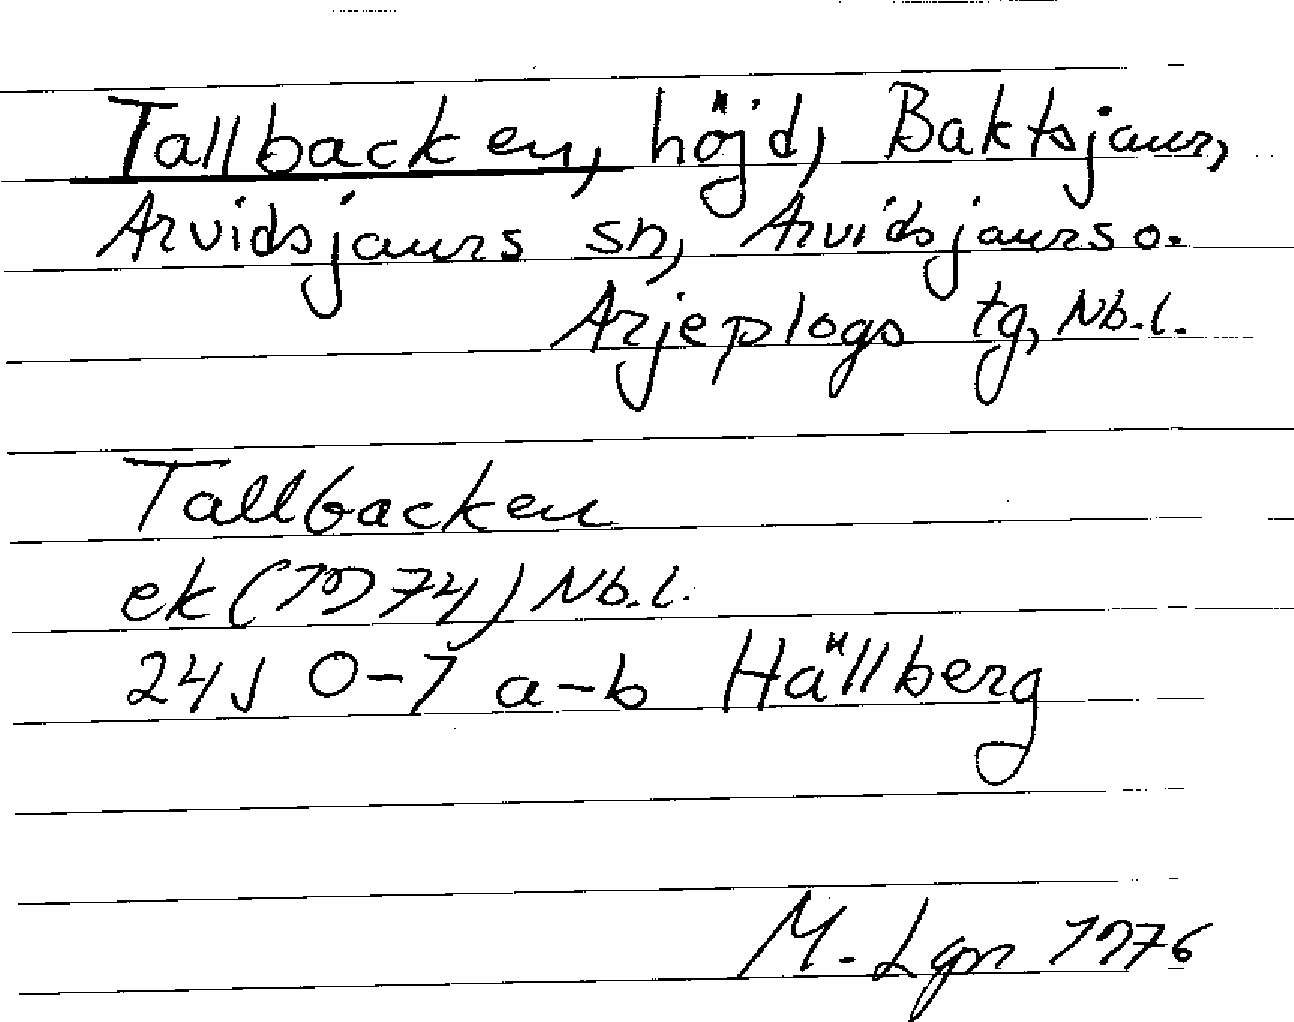 Tallbacken, höjd, Baktsjaur,
Arvidsjaurs sn, Arvidsjaurs o.
Arjeplogs tg, Nb.l.
Tallbacken
ek (1974) Nb.l.
24J 0-1 a-b Hällberg
M. Lgn 1976